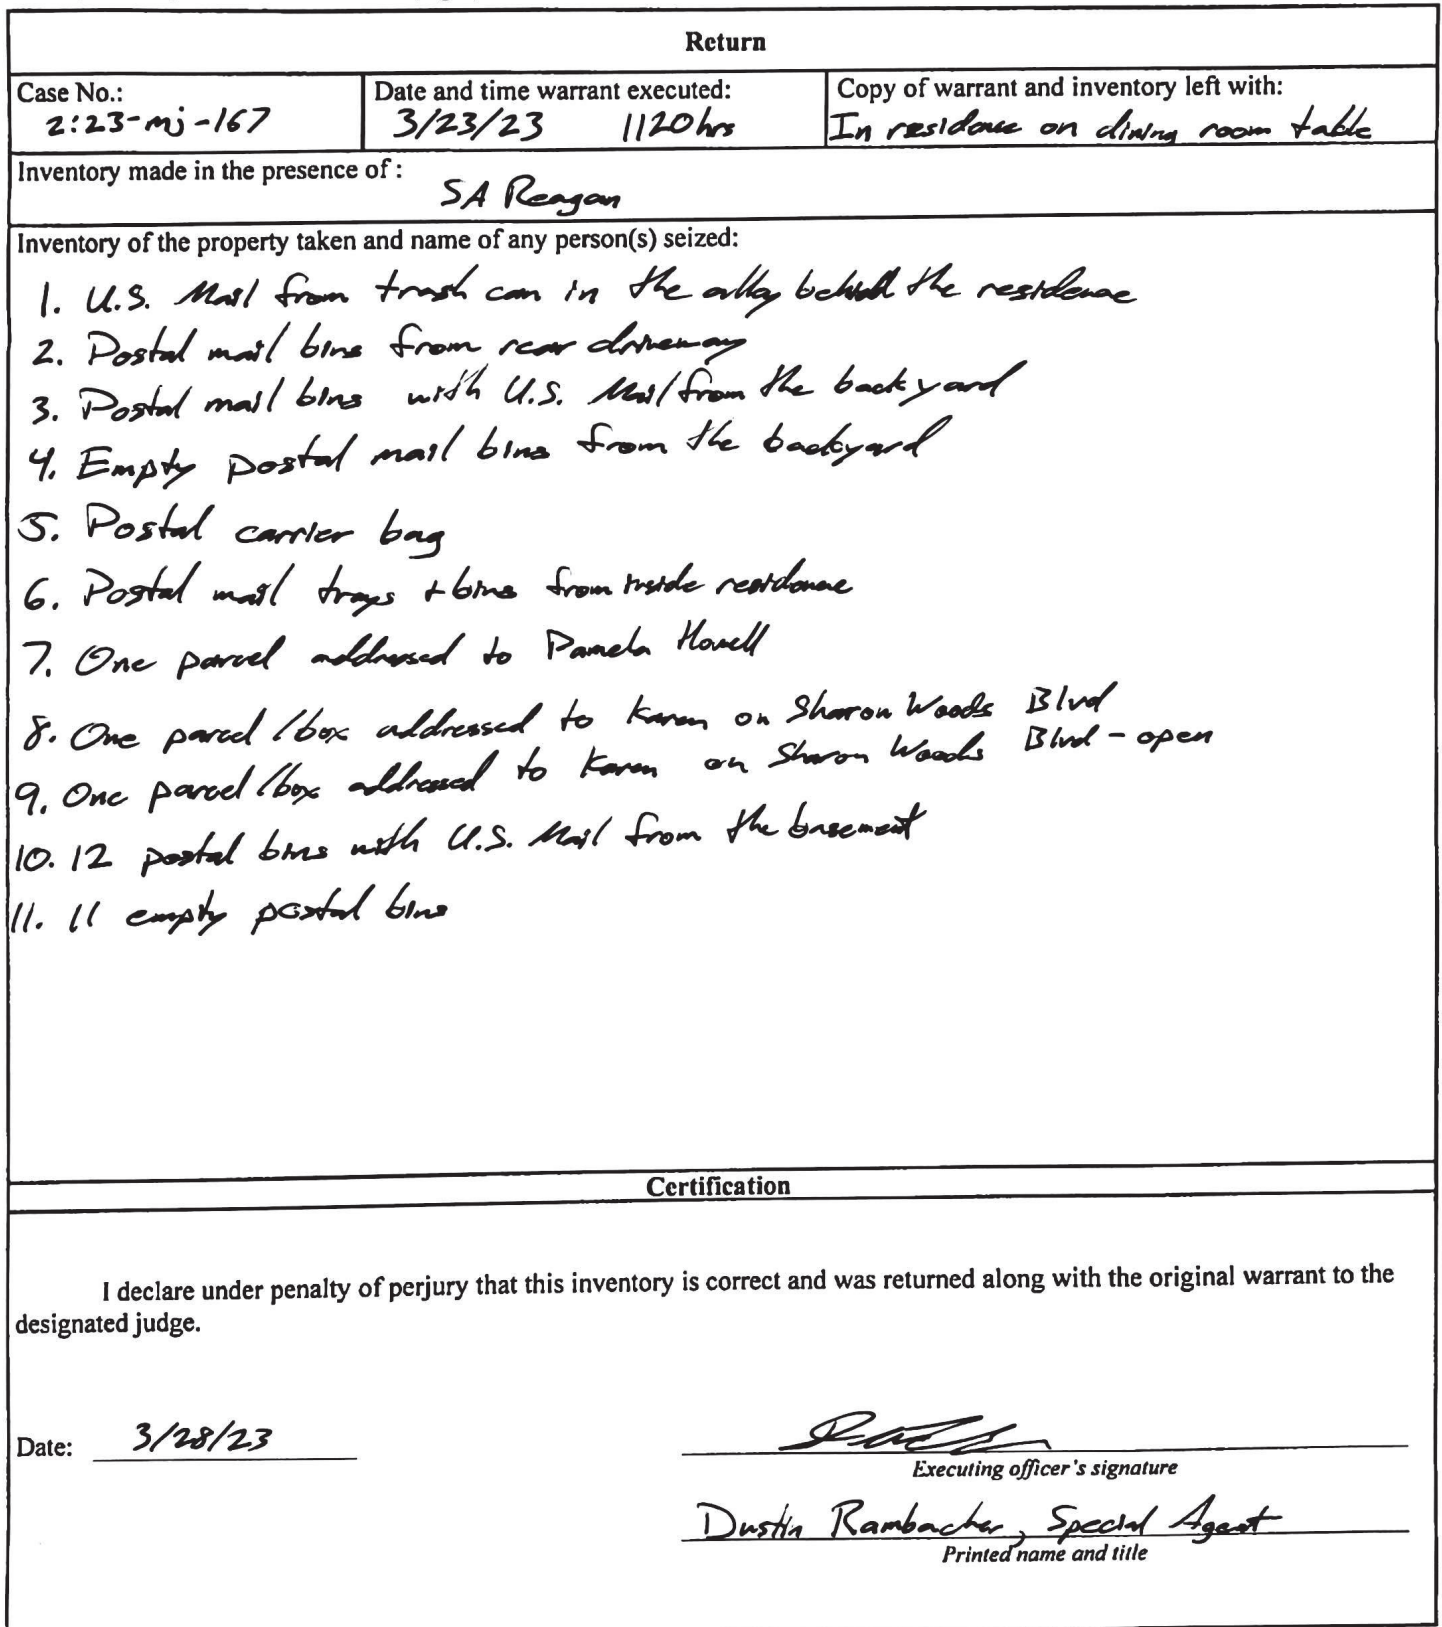 Return
Case No.:
2:23-mj-167
Date and time warrant executed:
3/23/23 1120hrs
Copy of warrant and inventory left with:
In residence on dining room table
Inventory made in the presence of :
SA Reagan
Inventory of the property taken and name of any person(s) seized:
1. U.S. Mail from trash can in the alley behind the residence
2. Postal mail bins from rear driveway
3. Postal mail bins with U.S. Mail from the backyard
4. Empty postal mail bins from the backyard
5. Postal carrier bag
6. Postal mail trays + bins from inside residence
7. One parcel addressed to Pamela Howell
8. One parcel/box addressed to Karen on Sharon Woods Blvd
9. One parcel/box addressed to Karen on Sharon Woods Blvd - open
10. 12 postal bins with U.S. Mail from the basement
11. 11 empty postal bins
Certification
I declare under penalty of perjury that this inventory is correct and was returned along with the original warrant to the
designated judge.
Date: 3/28/23
Executing officer's signature
Dustin Rambacher, Special Agent
Printed name and title